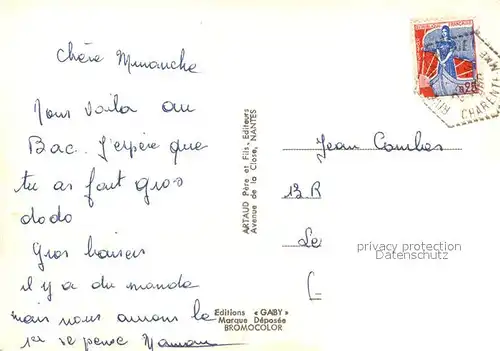 Chère Minouche
Nous voilà au
Bac. J'espère que
tu as fait gros
dodo
Gros baisers
il y a du monde
mais nous aurons la
1ère je pense Maman
ARTAUD Père et Fils, Editeurs
Avenue de la Close, NANTES
Editions « GABY »
Marque Déposée
BROMOCOLOR
REPUBLIQUE FRANÇAISE
0,25
CHARENTE
Jean Combes
12 R
Le
privacy protection
Datenschutz